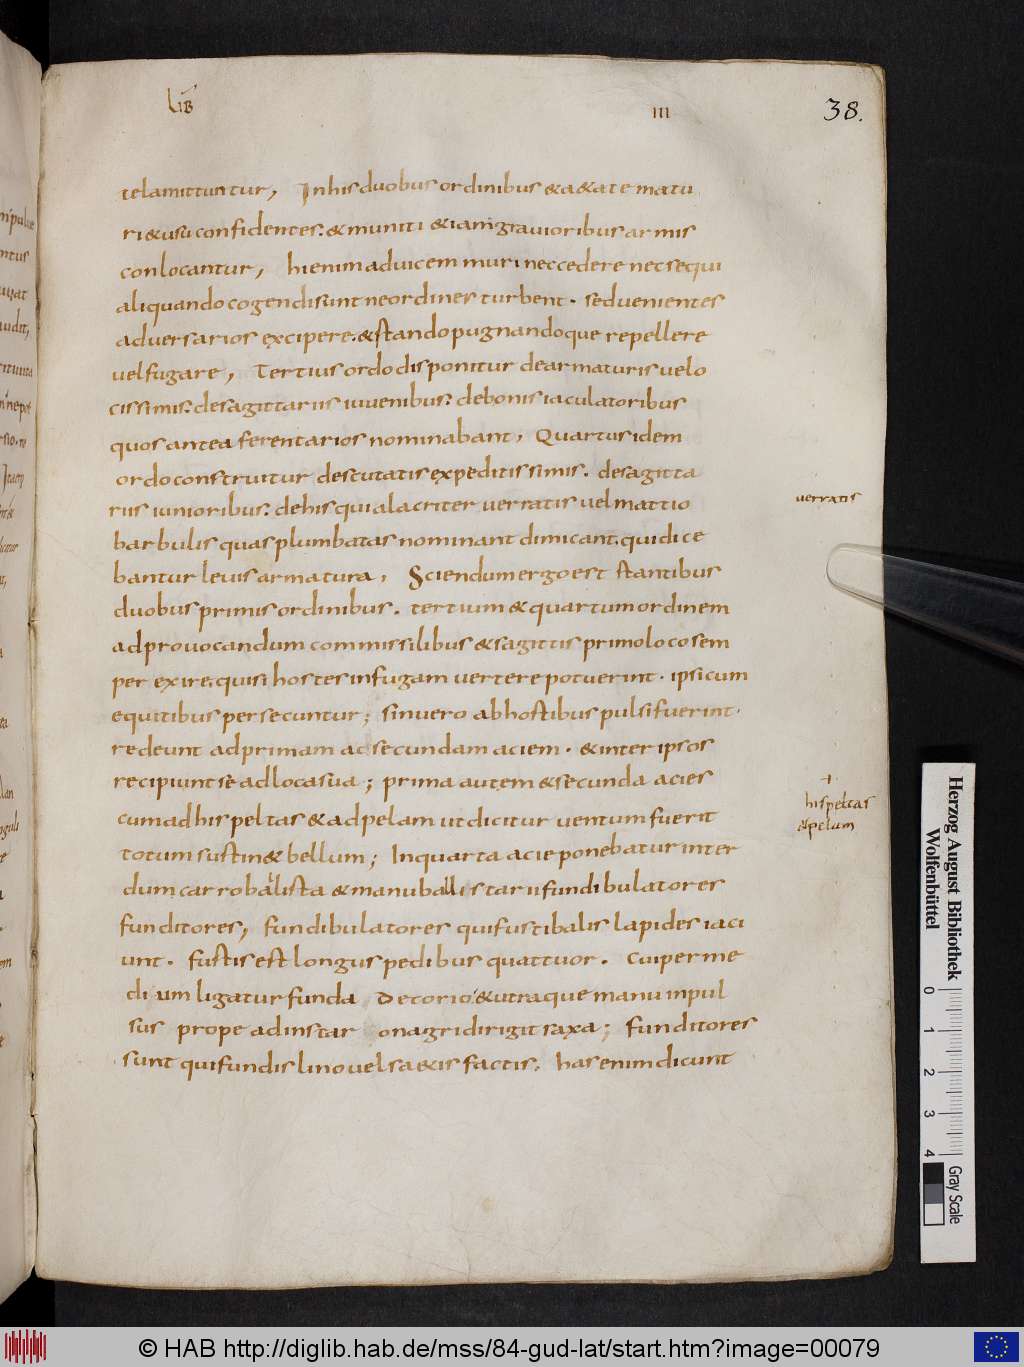 LIB III 38.
tela mittuntur, In his duobus ordinibus & a&ate matu
ri & usu confidentes. & muniti & iam grauioribus armis
conlocantur, hi enim aduicem muri nec cedere nec sequi
aliquando cogendi sunt ne ordines turbent. sed uenientes
aduersarios excipere. & stando pugnandoque repellere
uel fugare, Tertius ordo disponitur de armaturis uelo
cissimis. de sagittariis iuuenibus. de bonis iaculatoribus
quos antea ferentarios nominabant, Quartus idem
ordo construitur de scutatis expeditissimis. de sagitta
riis iunioribus. de his qui alacriter uerratis uel mattio
barbulis quas plumbatas nominant dimicant. qui dice
bantur leuis armatura, Sciendum ergo est stantibus
duobus primis ordinibus. tertium & quartum ordinem
ad prouocandum cum missilibus & sagittis primo loco sem
per exire. qui si hostes in fugam uertere potuerint. ipsi cum
equitibus persecuntur; sin uero ab hostibus pulsi fuerint.
redeunt ad primam ac secundam aciem. & inter ipsos
recipiunt se ad loca sua; prima autem & secunda acies
cum ad hispeltas & ad pelam ut dicitur uentum fuerit
totum sustin& bellum; In quarta acie ponebatur inter
dum carrobalista & manuballistarii fundibulatores
funditores, fundibulatores qui fustibalis lapides iaci
unt. fustis est longus pedibus quattuor. cui per me
dium ligatur funda de corio & utraque manu inpul
sus prope ad instar onagri dirigit saxa; funditores
sunt qui fundis lino uel sa&is factis. has enim dicunt
uerratis
hispeltas
& pelam
Herzog August Bibliothek
Wolfenbüttel
0 1 2 3 4
Gray Scale
© HAB http://diglib.hab.de/mss/84-gud-lat/start.htm?image=00079